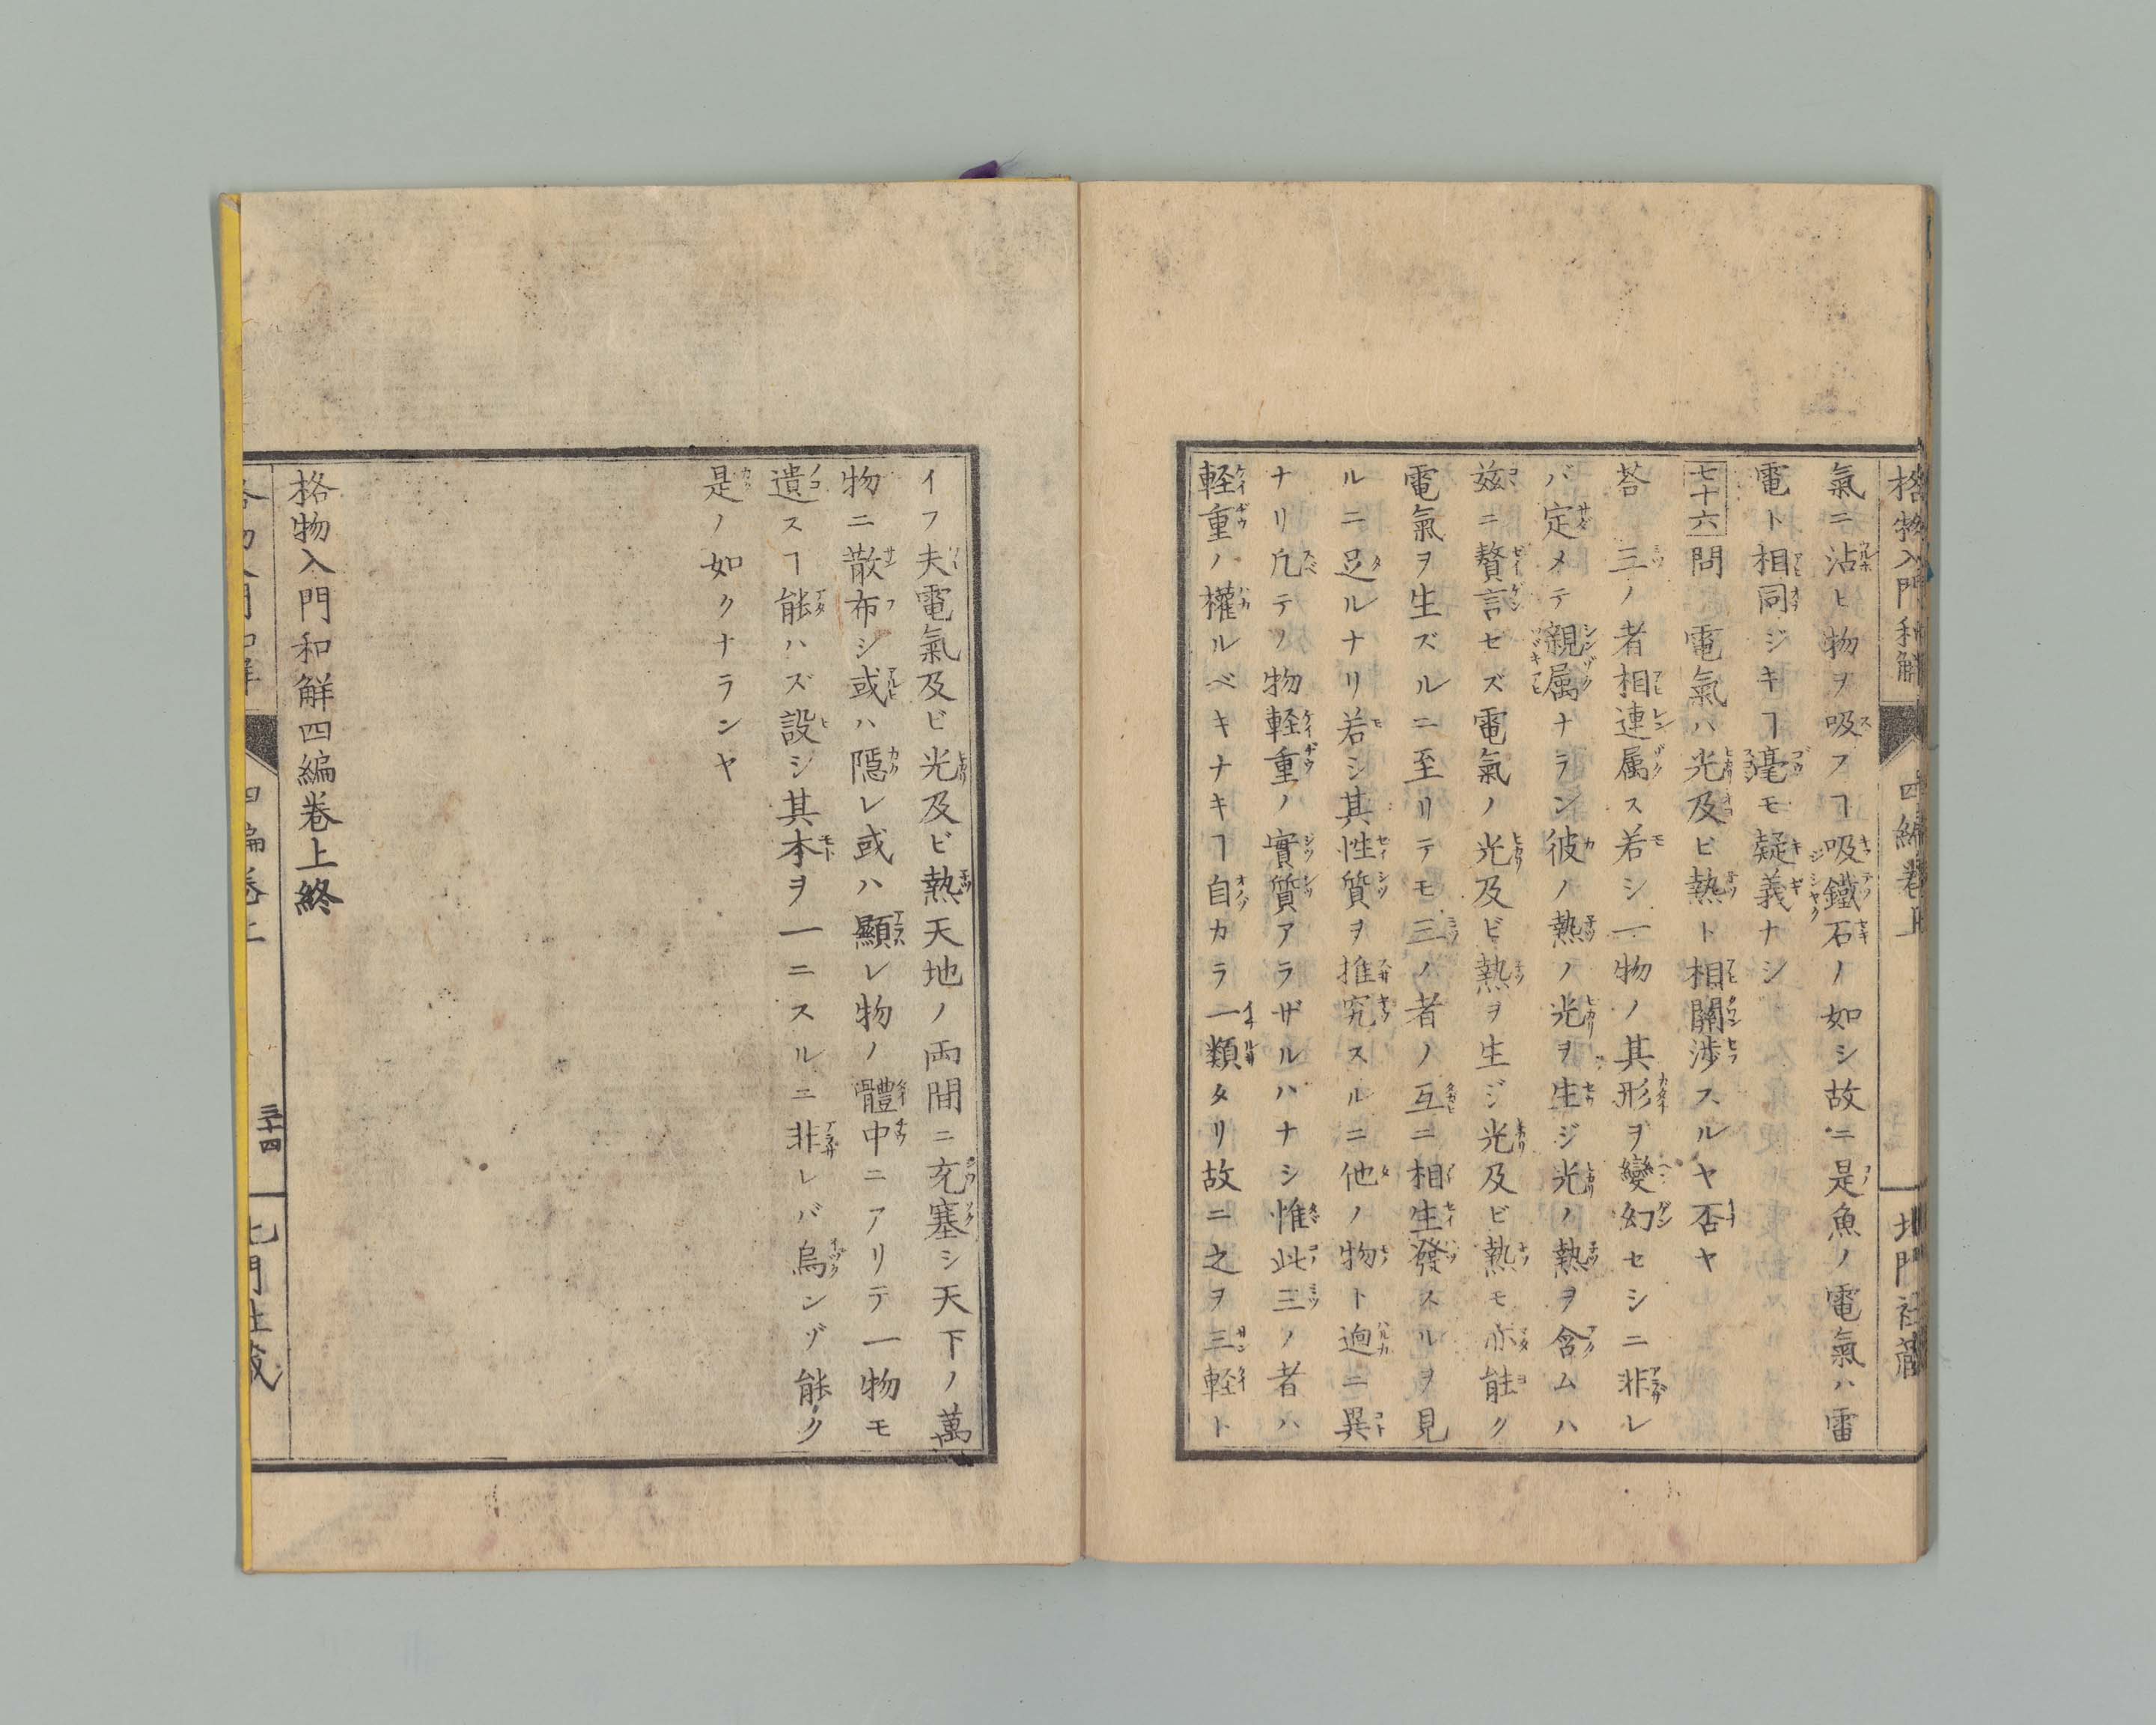 格物入門和解 四編卷上 北門社藏
氣ニ沾ヒ物ヲ吸フヿ吸鐵石ノ如シ故ニ是魚ノ電氣ハ雷
電ト相同ジキヿ毫モ疑義ナシ
七十六 問 電氣ハ光及ビ熱ト相關渉スルヤ否ヤ
荅 三ノ者相連属ス若シ一物ノ其形ヲ變幻セシニ非レ
バ定メテ親属ナラン彼ノ熱ノ光ヲ生ジ光ノ熱ヲ含ムハ
玆ニ贅言セズ電氣ノ光及ビ熱ヲ生ジ光及ビ熱モ亦能ク
電氣ヲ生ズルニ至リテモ三ノ者ノ互ニ相生發スルヲ見
ルニ足ルナリ若シ其性質ヲ推究スルニ他ノ物ト逈ニ異
ナリ凢テノ物軽重ノ實質アラザルハナシ惟此三ノ者ハ
軽重ノ權ルベキナキヿ自カラ一類タリ故ニ之ヲ三軽ト
イフ夫電氣及ビ光及ビ熱天地ノ両間ニ充塞シ天下ノ萬
物ニ散布シ或ハ隠レ或ハ顯レ物ノ體中ニアリテ一物モ
遺スヿ能ハズ設シ其本ヲ一ニスルニ非レバ烏ンゾ能ク
是ノ如クナランヤ
格物入門和解四編卷上終
四編卷上 三十四 北門社藏